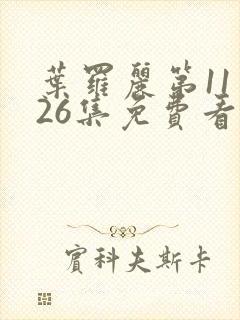 葉羅麗第11
26集免費看
賓科夫斯卡